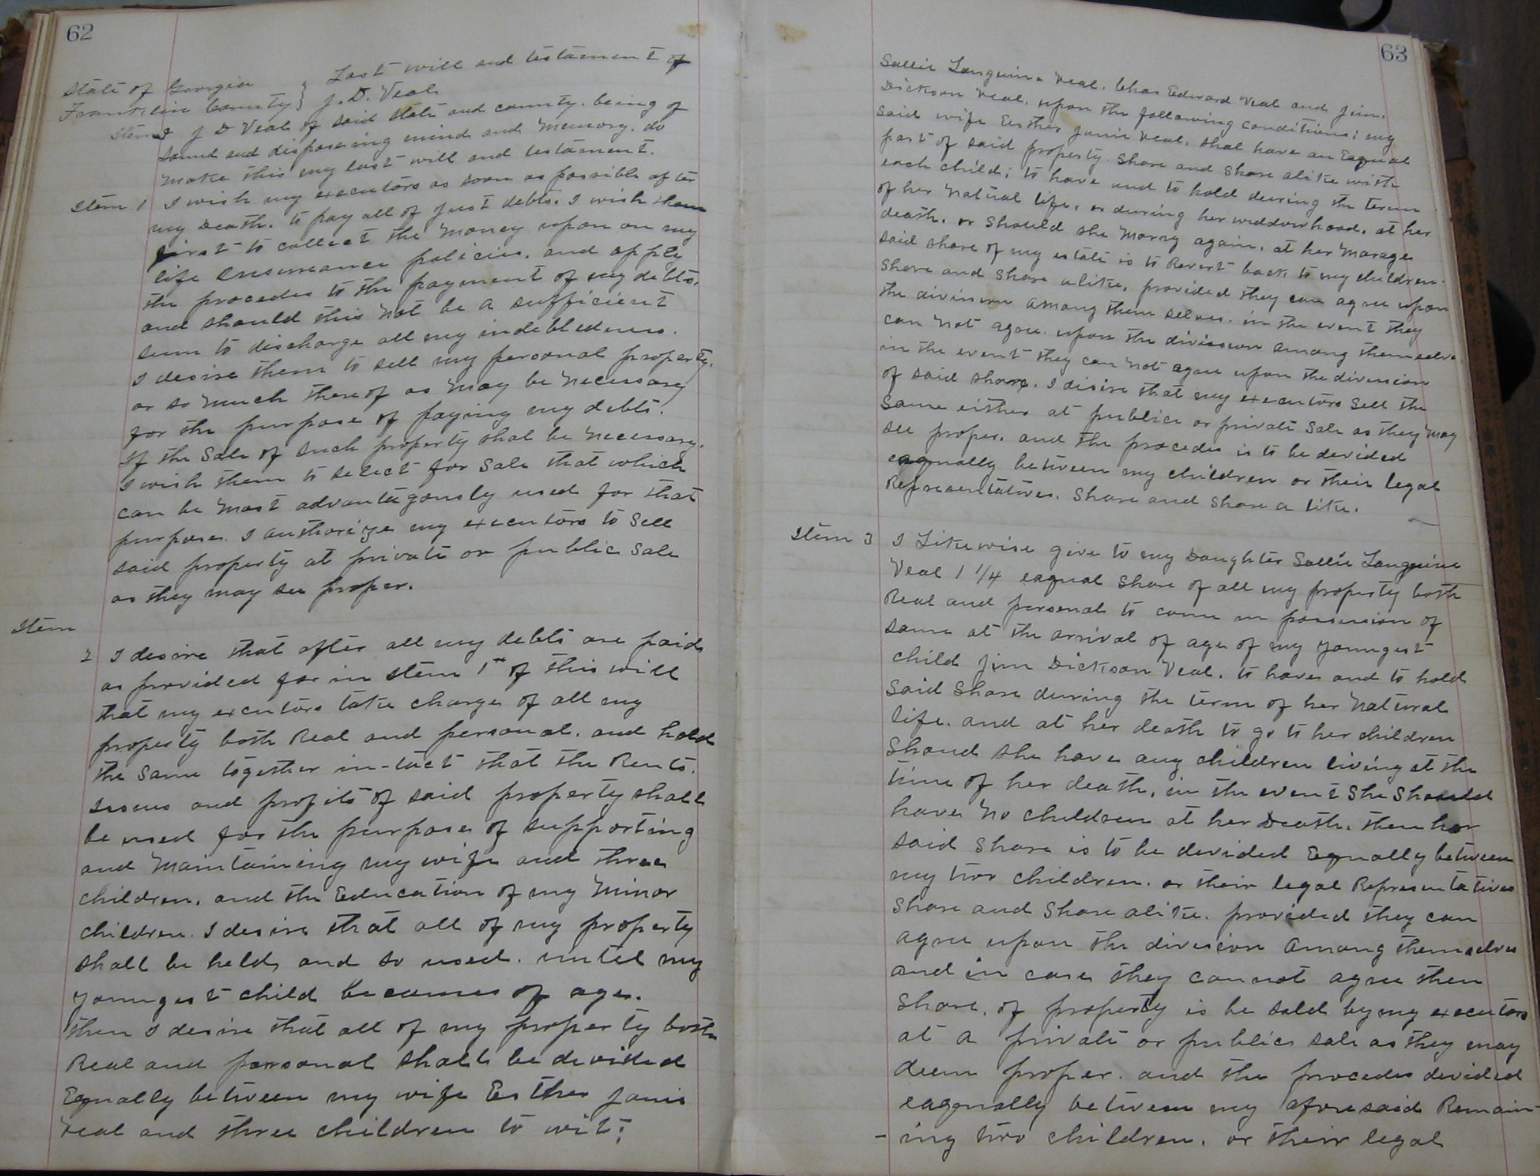 62
State of Georgia } Last will and testament of
Franklin County } J. D. Veal
Item I J D Veal of said state and county. being of
sound and disposeing mind and Memory. do
make this my last will and testament.
Item 1 I wish my executors as soon as possible after
my Death. to pay all of just debts. I wish them
first to collect the Money upon on my
life Insurance policies. and apply
the procedes to the payment of my debts.
and should this Not be a sufficient
sum to discharge all my indebtedness.
I desire them to sell my personal property.
or so Much thereof as May be Necessary
for the purpose of paying my debts.
If the Sale of such property shal be Necessary.
I wish them to select for Sale that which
can be Most advantagously used for that
purpose. I authorize my executors to Sell
said property at private or public Sale
as they may see proper.
Item
2 I desire that after all my debts are paid
as provided for in Item 1st of this will
that my excutors take charge of all my
property both Real and personal. and hold
the Same together in-tact that the Rents.
issues and profits of said property shall
be used for the purpose of supporting
and Maintaining my wife and three
children. and the Education of my Minor
children. I desire that all of my property
shall be held and so used. until my
youngest child becomes of age.
then I desire that all of my property both
Real and personal shall be devided
Equally between my wife Esther Janie
Veal and three children to wit:
63
Sallie Languine Veal. Chas Edward Veal and Jim.
Dickson Veal. upon the following conditions; my
said wife Esther Janie Veal. shal have an Eaqual
part of said property Share and Share alike with
each child; to have and to hold during the term
of her Natural life. or during her widdowhood. at her
death. or Should she Marry again. at her Marage
said share of my estate is to Revert back to my children.
Share and Share alike. provided they can agree upon
the division among them selves. in the event they
can Not agree upon the division among themselves
in the event they can Not agree upon the division
of said share. I disire that my executors Sell the
Same either at publice or private Sale as they May
see proper. and the procedes is to be devided
eaqually between my children or their legal
Representatives. Share and Share a like.
Item 3 I Likewise give to my Daughter Sallie Languine
Veal 1 1/4 eaqual Share of all my property both
Real and personal to come in possession of
same at the arrival of age of my youngest
child Jim Dickson Veal. to have and to hold
Said Share during the term of her Natural
life. and at her death to go to her children
Shoud she have any children living at the
time of her death, in the event She Should
have No children at her Death. then her
said Share is to be devided Equally between
my two children. or their legal Representatives
Share and Share alike. provided they can
agree upon the division Among themselves
and in case they cannot agree then
Share. of property is be sold by my executors
at a private or public sale as they may
deem proper. and the procedes devided
eaqually between my aforesaid Remain-
-ing two children. or their legal